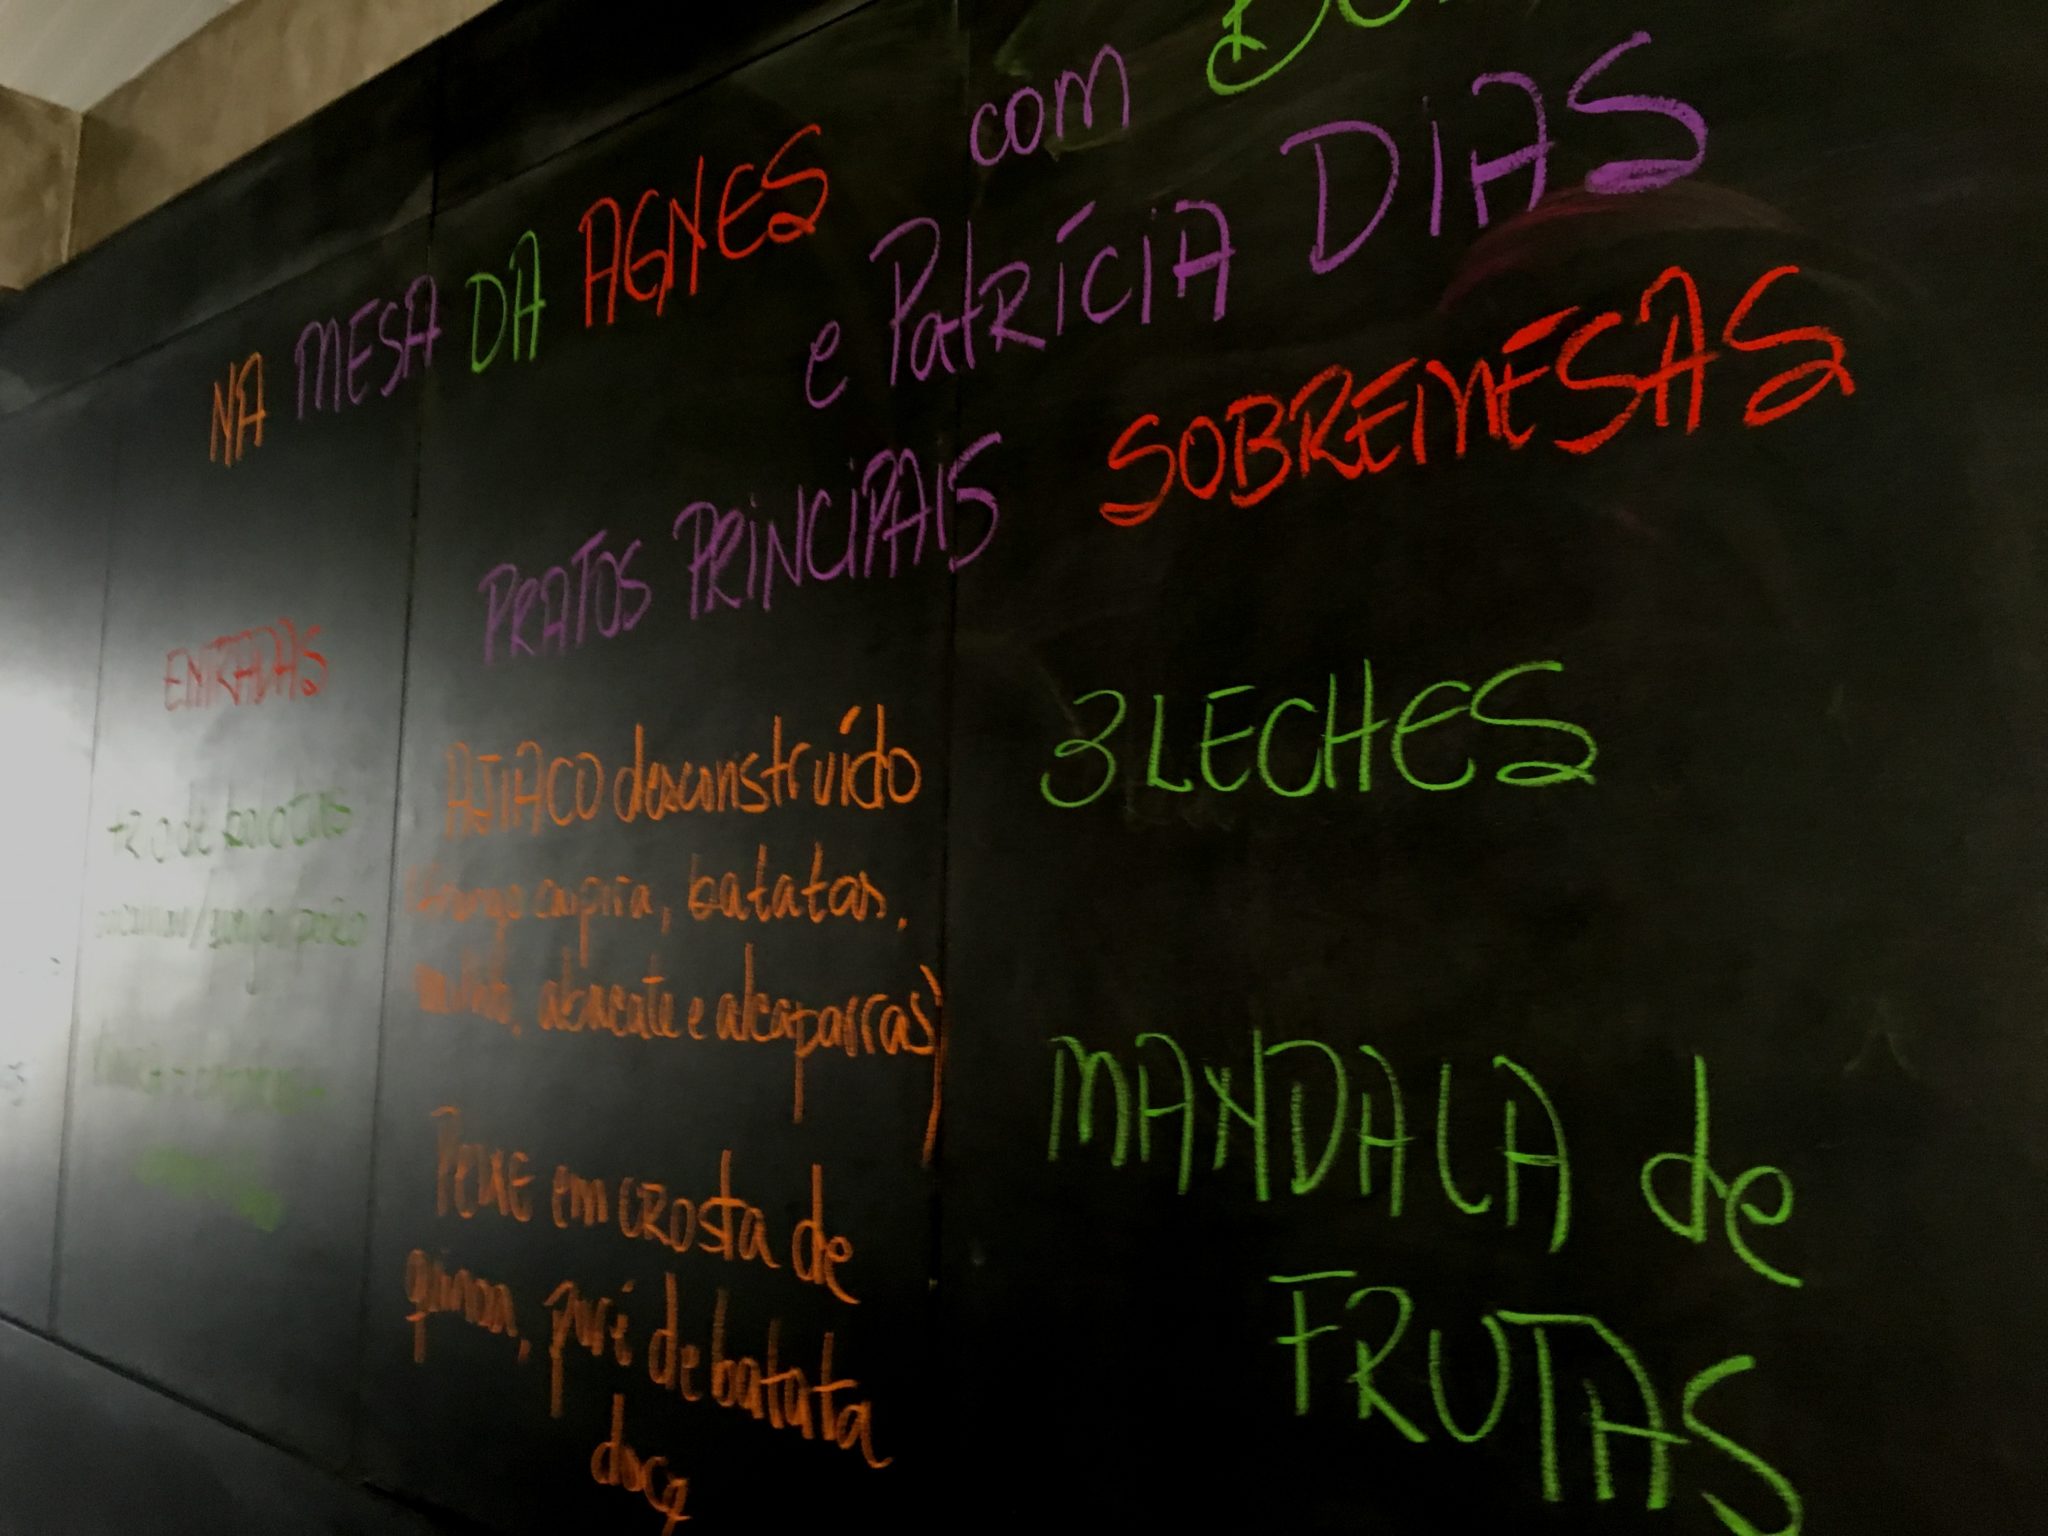 NA MESA DA AGNES com
e PatRÍCIA DIAS
ENTRADAS
tRio de
PRATOS PRINCIPAIS
AJIACO desconstruído
(frango caipira, batatas,
milho, abacate e alcaparras)
PEIXE em CROSTA de
quinoa, purê de batata
doce
SOBREMESAS
3 LECHES
MANDALA de
FRUTAS